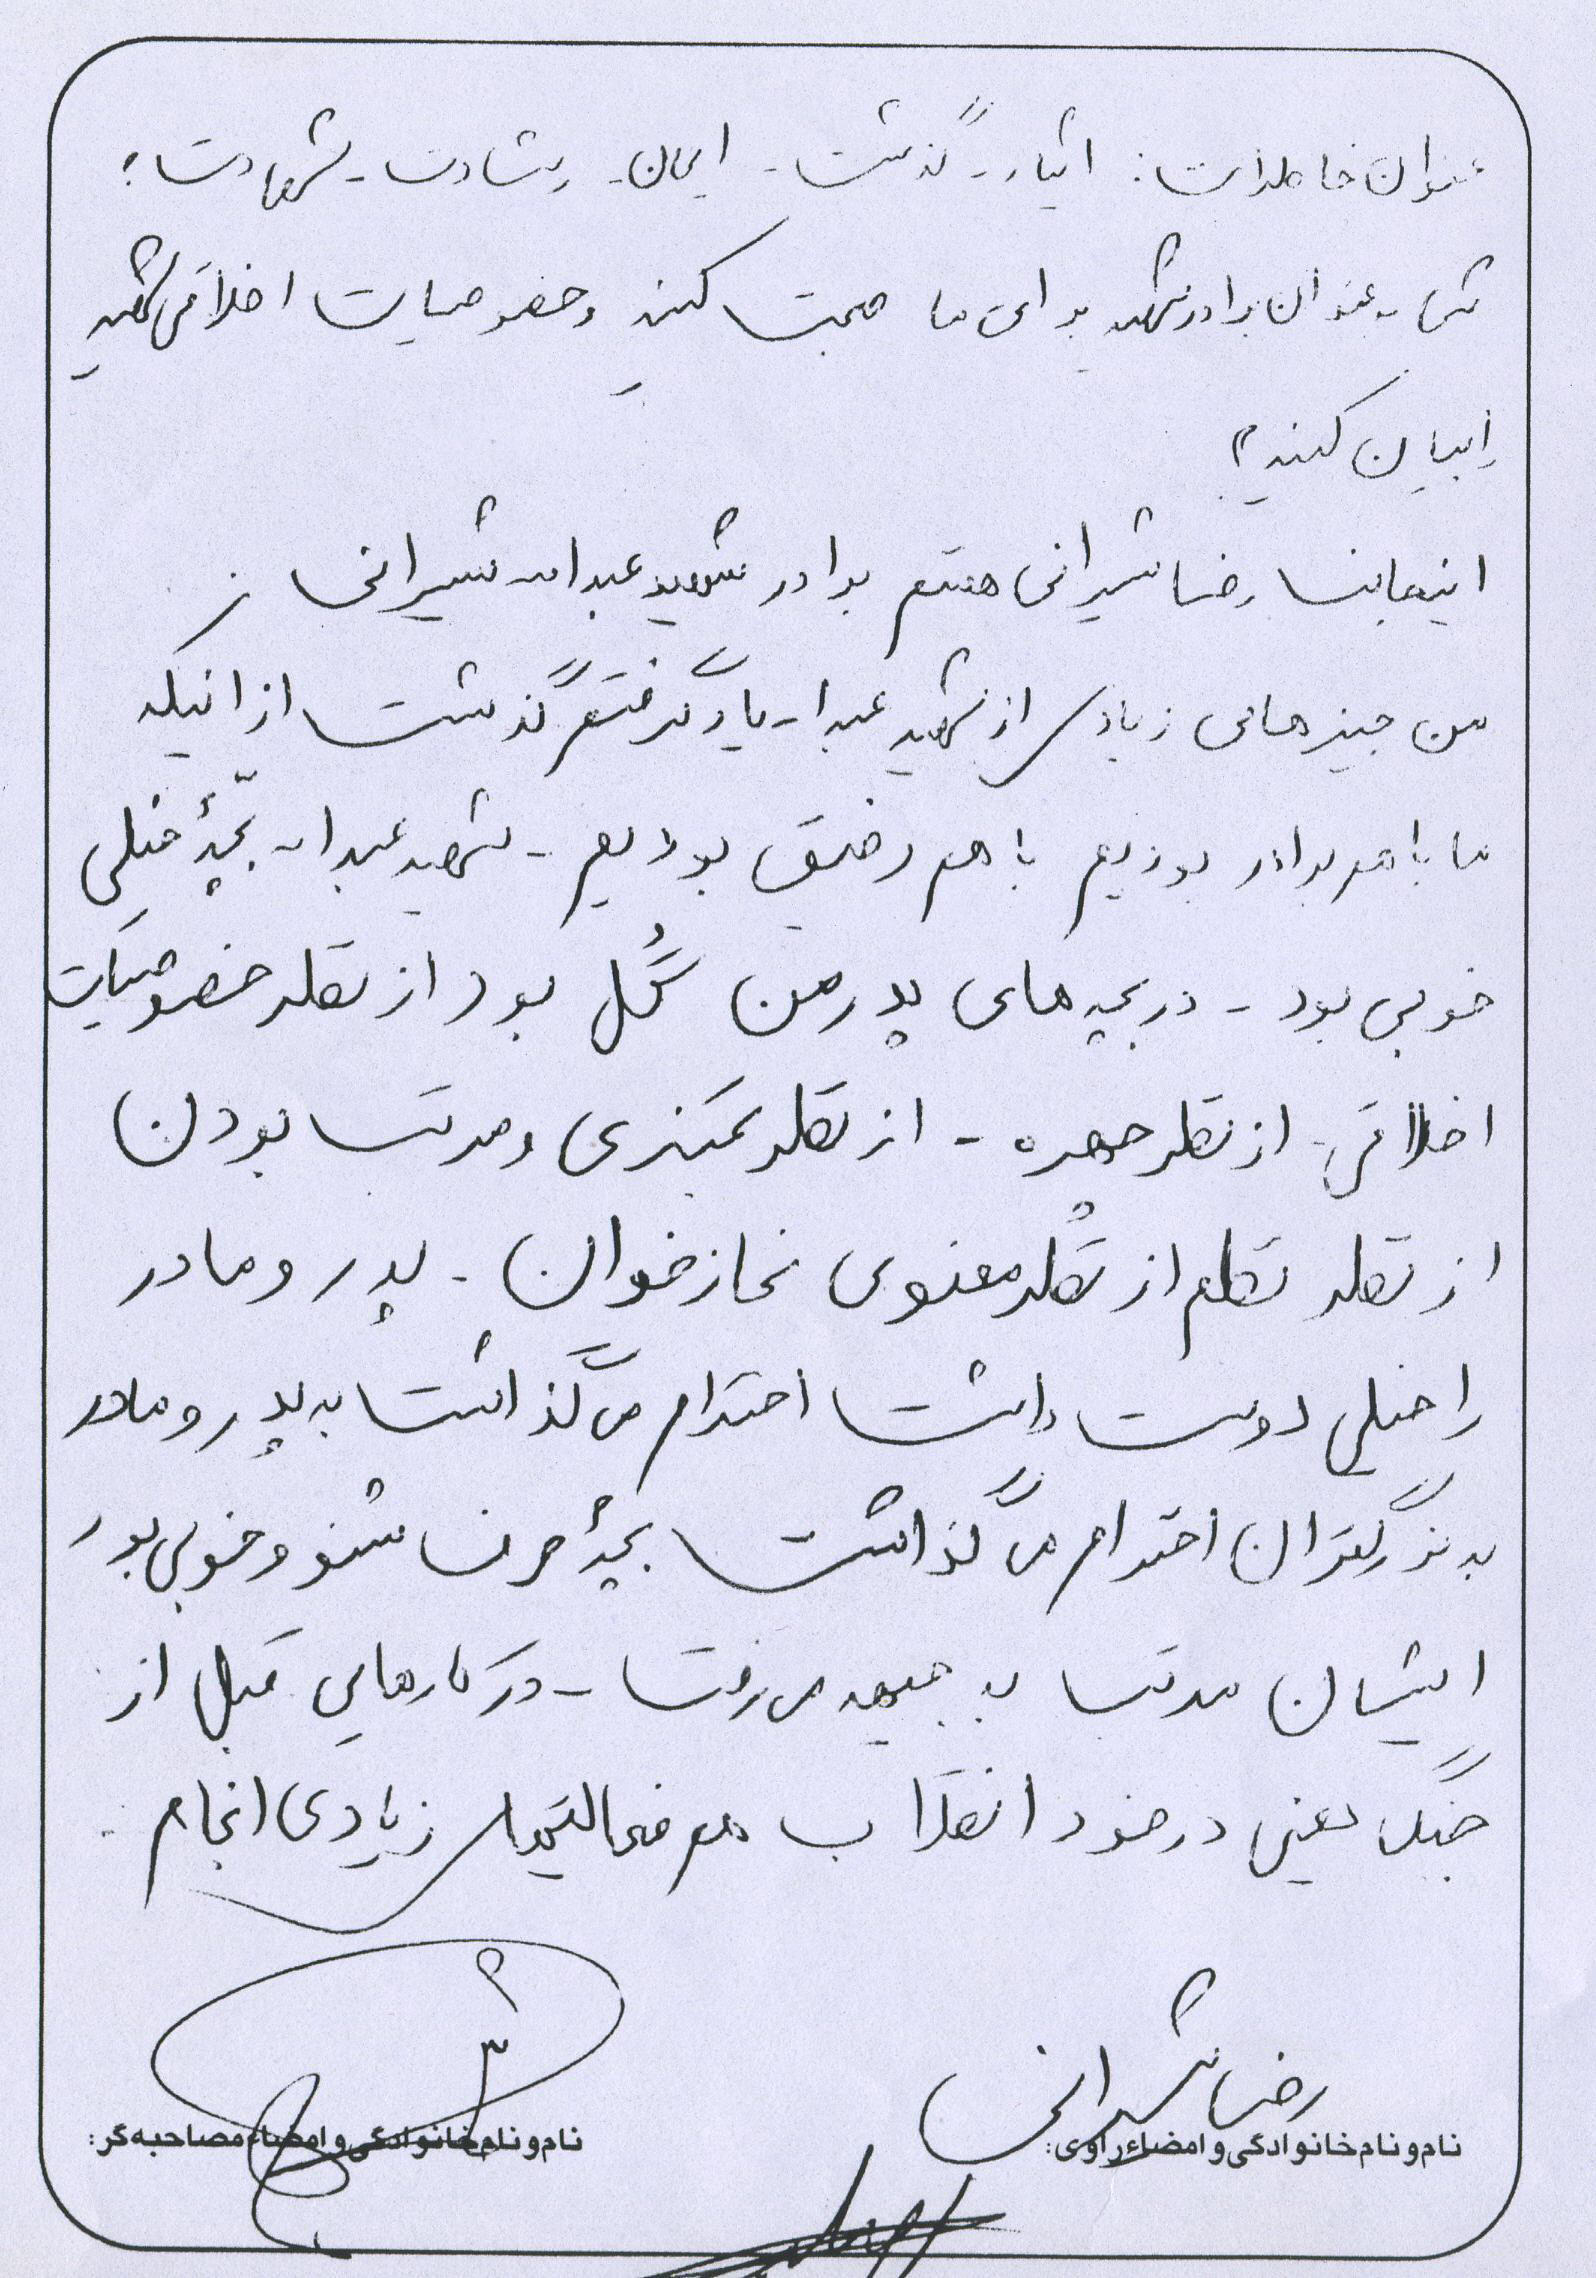 عنوان خاطرات: ایثار - گذشت - ایمان - رشادت - شهادت؛
شما به عنوان برادر شهید برای ما صحبت کنید و خصوصیات اخلاقی شهید
را بیان کنید؟
اینجانب رضا شیرانی هستم برادر شهید عبداله شیرانی
من چیزهای زیادی از شهید عبداله یاد گرفتم گذشت از اینکه
ما با هم برادر بودیم با هم رفیق بودیم - شهید عبداله بچّهٔ خیلی
خوبی بود - در بچه های پدر من گُل بود از نظر خصوصیات
اخلاقی - از نظر چهره - از نظر تمیزی و مرتب بودن
از نظر نظم از نظر معنوی نماز خوان - پدر و مادر
را خیلی دوست داشت احترام می گذاشت به پدر و مادر
به بزرگتران احترام می گذاشت بچهٔ حرف شنو و خوبی بود
ایشان مرتب به جبهه می رفت - در کارهایی قبل از
جنگ یعنی در خود انقلاب هم فعالیتهای زیادی انجام
رضا شیرانی
نام و نام خانوادگی و امضاء راوی:
نام و نام خانوادگی و امضاء مصاحبه گر: